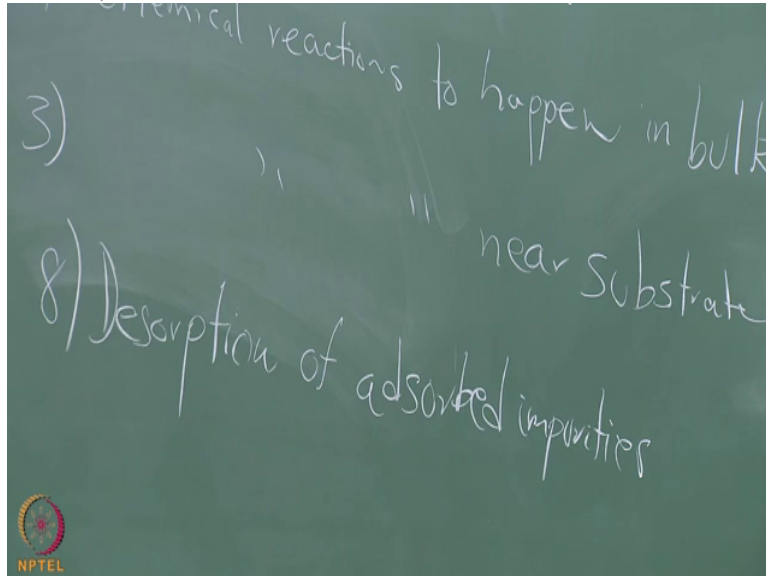 chemical reactions to happen in bulk
3) " " near substrate
8) Desorption of adsorbed impurities
NPTEL